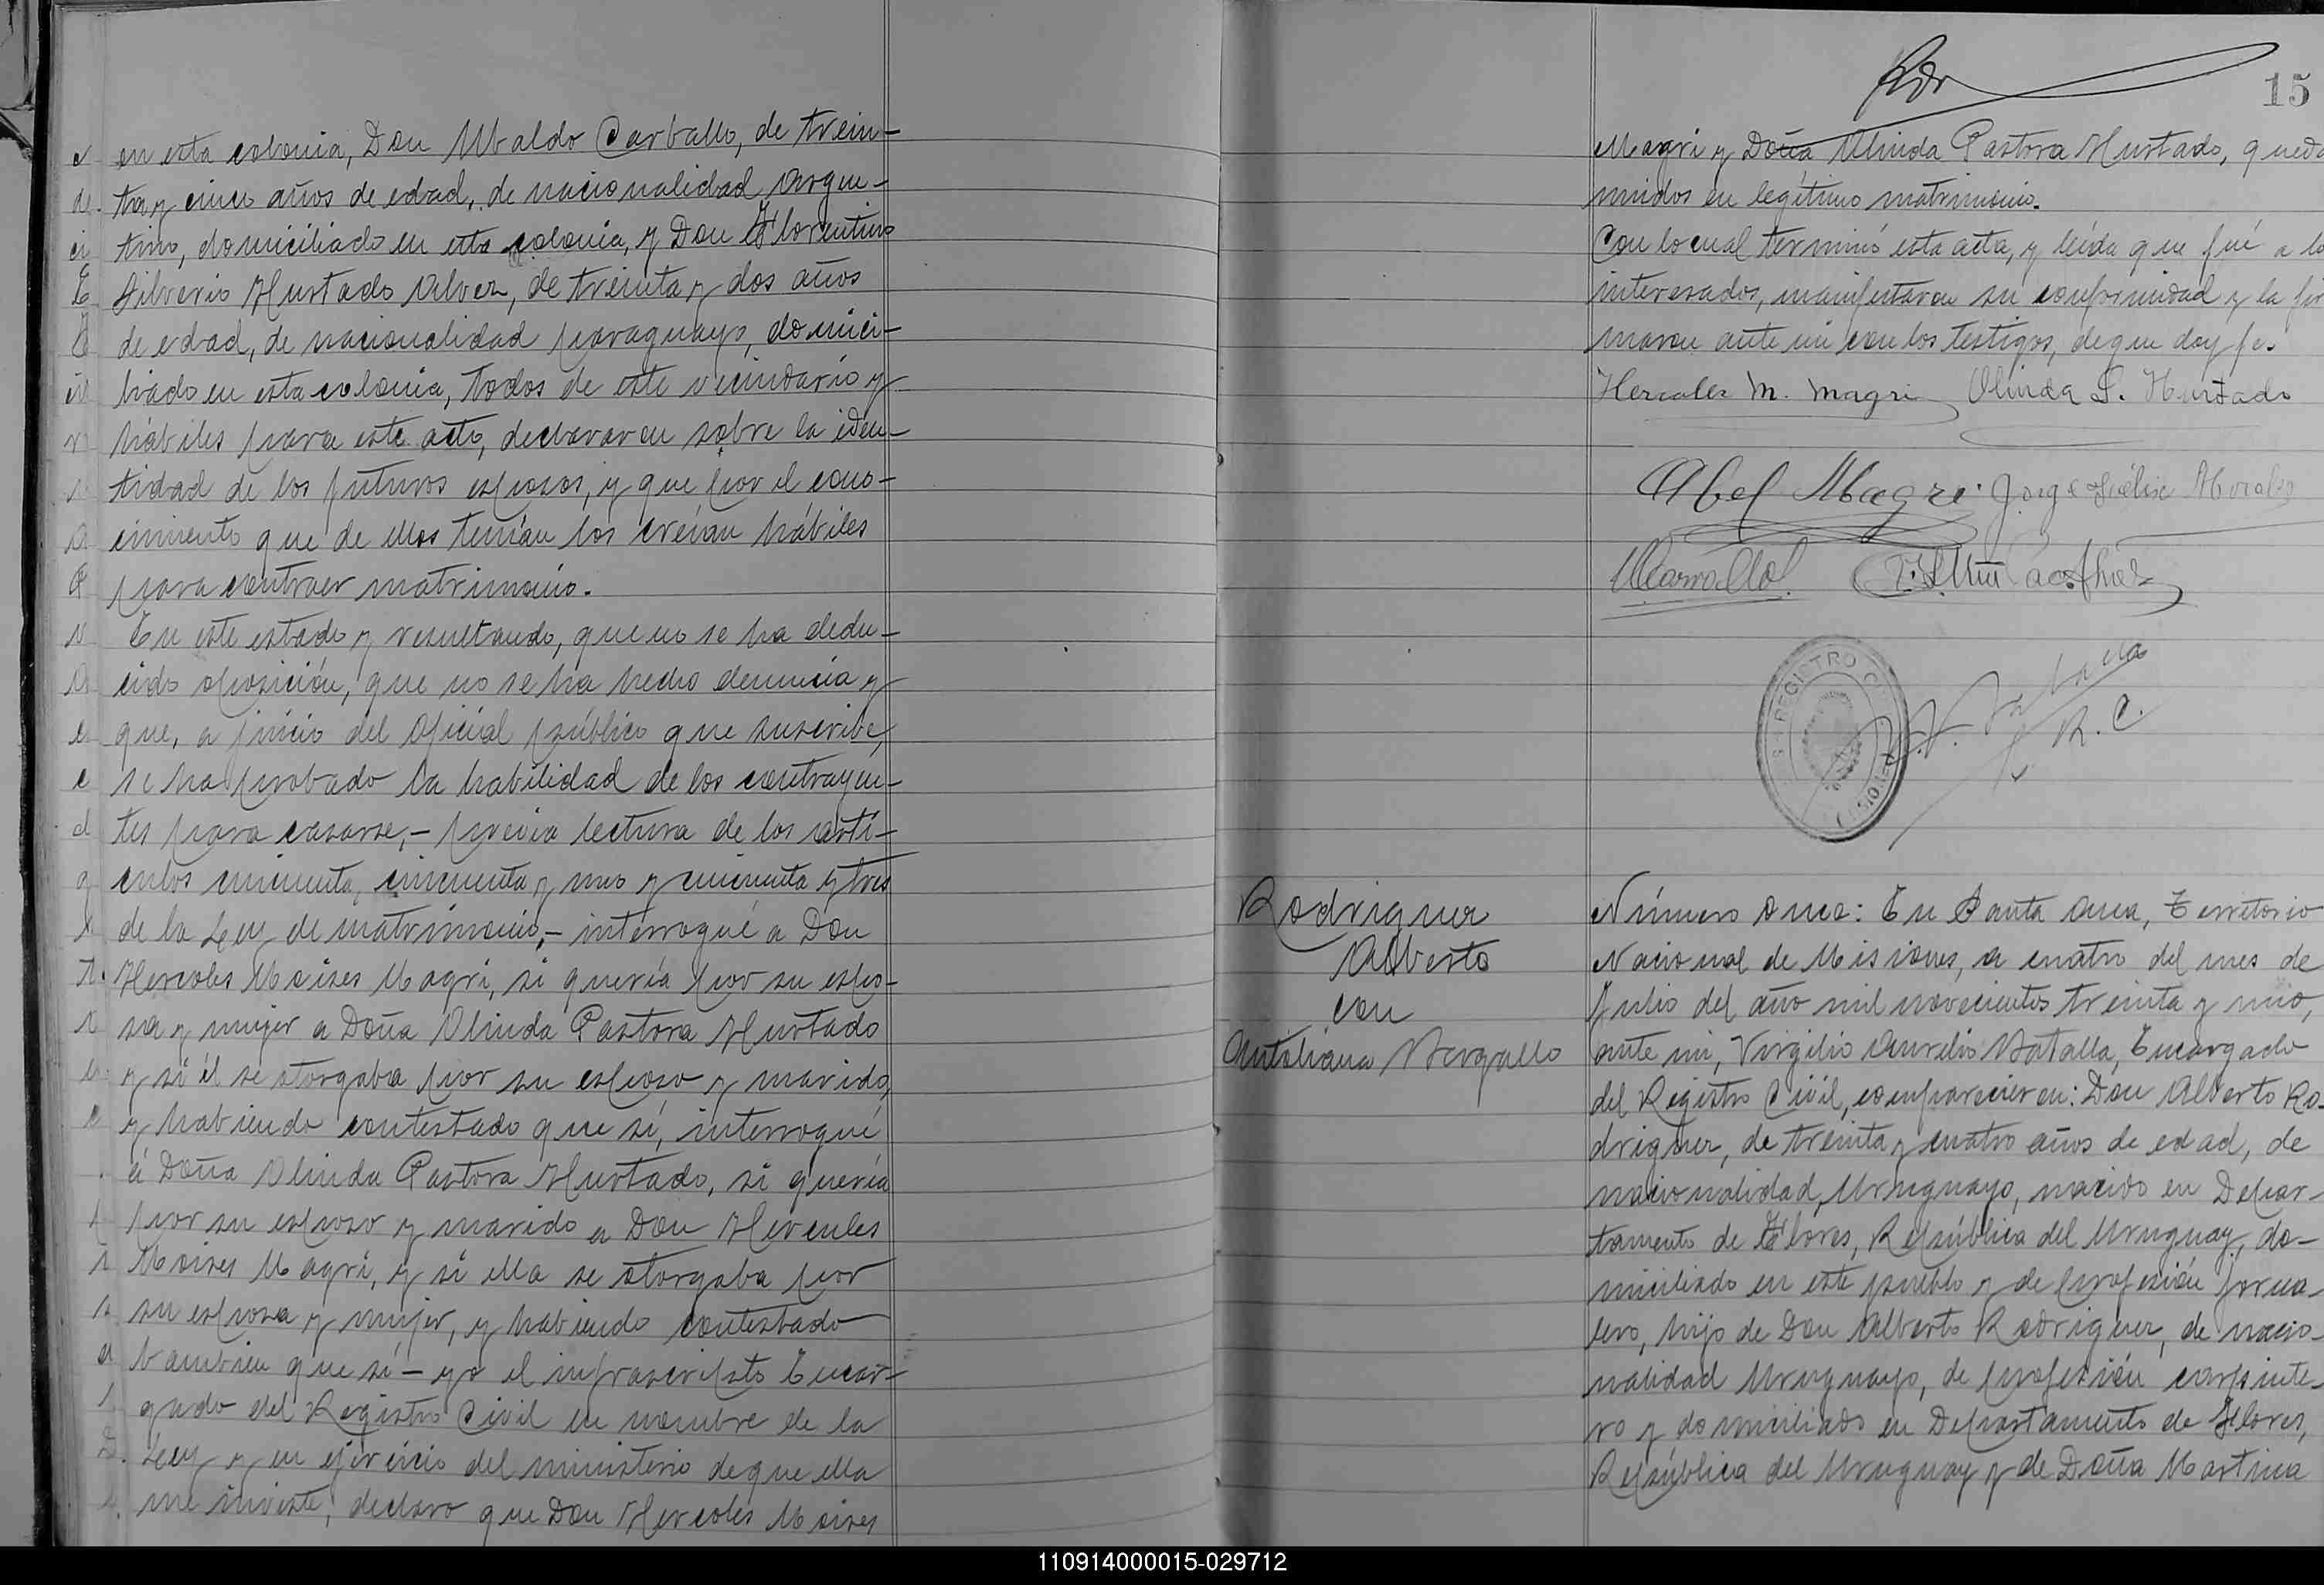 en esta colonia, Don Ubaldo Carballo, de trein-
ta y cinco años de edad, de nacionalidad argen-
tino, domiciliado en esta colonia, y Don Florentino
Silverio Hurtado Alvez, de treinta y dos años
de edad, de nacionalidad paraguayo, domici-
liado en esta colonia, todos de este vecindario y
hábiles para este acto, declararon sobre la iden-
tidad de los futuros esposos, y que por el cono-
cimiento que de ellos tenían los creían hábiles
para contraer matrimonio.
En este estado y resultando, que no se ha dedu-
cido oposición, que no se ha hecho denuncia y
que, a juicio del Oficial público que suscribe,
se ha probado la habilidad de los contrayen-
tes para casarse,- previa lectura de los artí-
culos cincuenta, cincuenta y uno y cincuenta y tres
de la Ley de matrimonio,- interrogué a Don
Hercoles Moises Magri, si quería por su espo-
sa y mujer a Doña Olinda Pastora Hurtado
y si él se otorgaba por su esposo y marido,
y habiendo contestado que sí, interrogué
á Doña Olinda Pastora Hurtado, si quería
por su esposo y marido a Don Hercules
Moises Magri, y si ella se otorgaba por
su esposa y mujer, y habiendo contestado
tambien que sí - yo el infrascripto Encar-
gado del Registro Civil en nombre de la
Ley y en ejercicio del ministerio de que ella
me inviste, declaro que Don Hercoles Moises
15
Magri y Doña Olinda Pastora Hurtado, queda
unidos en legítimo matrimonio.
Con lo cual terminó esta acta, y leída que fué a lo
interesados, manifestaron su conformidad y la fir
maron ante mi con los testigos, de que doy fe.
Hercoles M. Magri Olinda P. Hurtado
Abel Magri Jorge Félix Morales
UCarvallo
REGISTRO
R. C.
Rodriguez
Alberto
con
Vergallo
Número once: En Santa Ana, Territorio
Nacional de Misiones, a cuatro del mes de
Julio del año mil novecientos treinta y uno,
ante mi, Virgilio Aurelio Batalla, Encargado
del Registro Civil, comparecieron: Don Alberto Ro-
driguez, de treinta y cuatro años de edad, de
nacionalidad Uruguayo, nacido en Depar-
tamento de Flores, República del Uruguay, do-
miciliado en este pueblo y de profesión jorna-
lero, hijo de Don Alberto Rodriguez, de nacio-
nalidad Uruguayo, de profesión carpinte-
ro y domiciliado en Departamento de Flores,
República del Uruguay y de Doña Martina